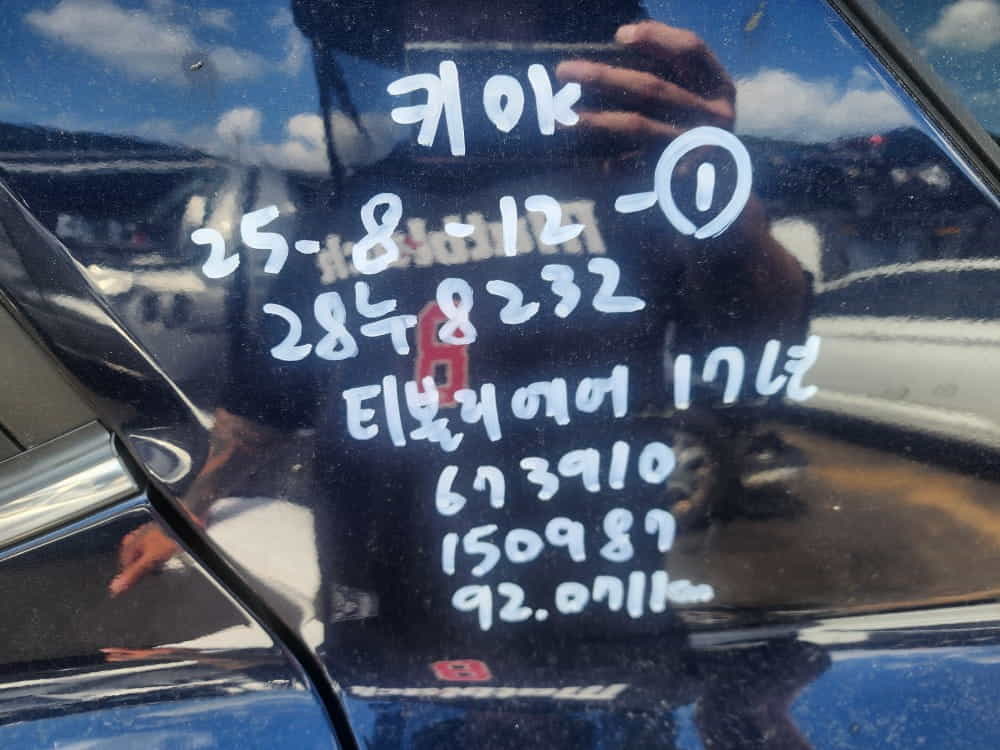 키 OK
25-8-12-①
28누8232
티볼리에어 17년
673910
150987
92.071km
8
8